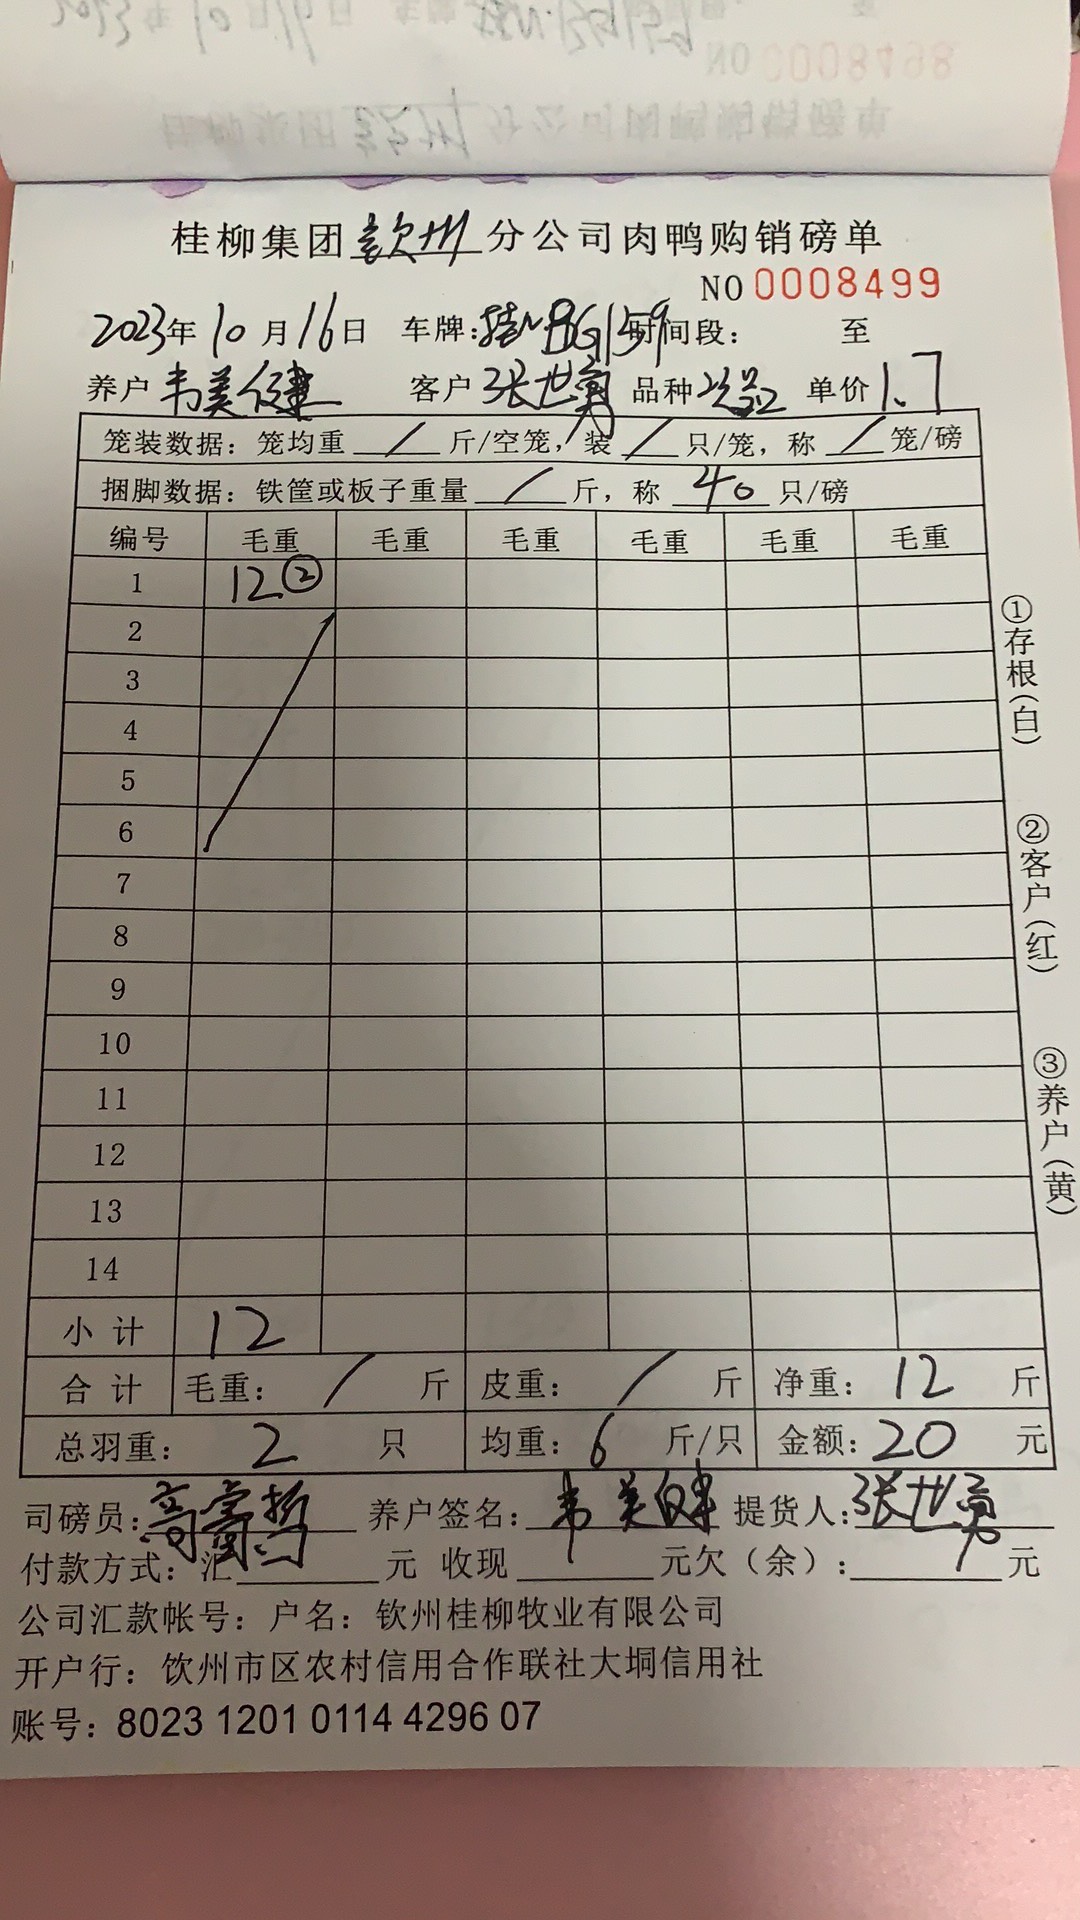 NO 0008498
桂柳集团钦州分公司肉鸭购销磅单
NO 0008499
2023年10月16日 车牌:桂NBG159 时间段: 至
养户韦美健 客户张世勇 品种 单价1.7
笼装数据: 笼均重/斤/空笼, 装/只/笼, 称/笼/磅
捆脚数据: 铁筐或板子重量/斤, 称40只/磅
编号 毛重 毛重 毛重 毛重 毛重 毛重
1 12②
2
3
4
5
6
7
8
9
10
11
12
13
14
小计 12
合计 毛重: / 斤 皮重: / 斤 净重: 12 斤
总羽重: 2 只 均重: 6 斤/只 金额: 20 元
司磅员: 养户签名: 韦美健 提货人: 张世勇
付款方式: 汇 元 收现 元欠(余): 元
公司汇款帐号: 户名: 钦州桂柳牧业有限公司
开户行: 饮州市区农村信用合作联社大垌信用社
账号: 8023 1201 0114 4296 07
①存根(白)
②客户(红)
③养户(黄)